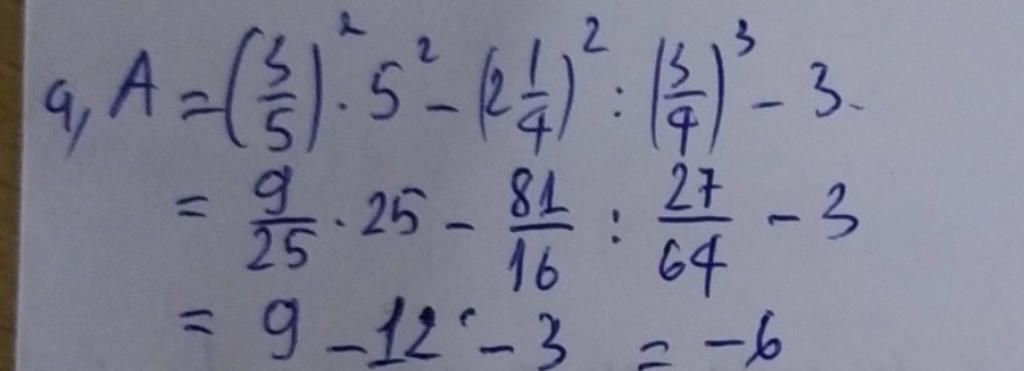 a, A = (3/5)² · 5² - (2 1/4)² : (3/4)³ - 3.
= 9/25 · 25 - 81/16 : 27/64 - 3
= 9 - 12 - 3 = -6